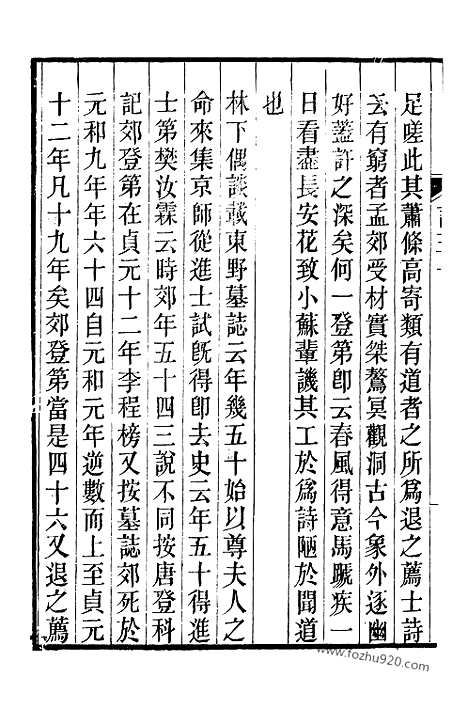 足嗟此其蕭條高寄類有道者之所爲退之薦士詩
云有窮者孟郊受材實桀驁冥觀洞古今象外逐幽
好蓋許之深矣何一登第卽云春風得意馬蹏疾一
日看盡長安花致小蘇輩譏其工於爲詩陋於聞道
也
林下偶談載東野墓誌云年幾五十始以尊夫人之
命來集京師從進士試旣得卽去史云年五十得進
士第樊汝霖云時郊年五十四三說不同按唐登科
記郊登第在貞元十二年李程榜又按墓誌郊死於
元和九年年六十四自元和元年逆數而上至貞元
十二年凡十九年矣郊登第當是四十六又退之薦
www.fozhu920.com